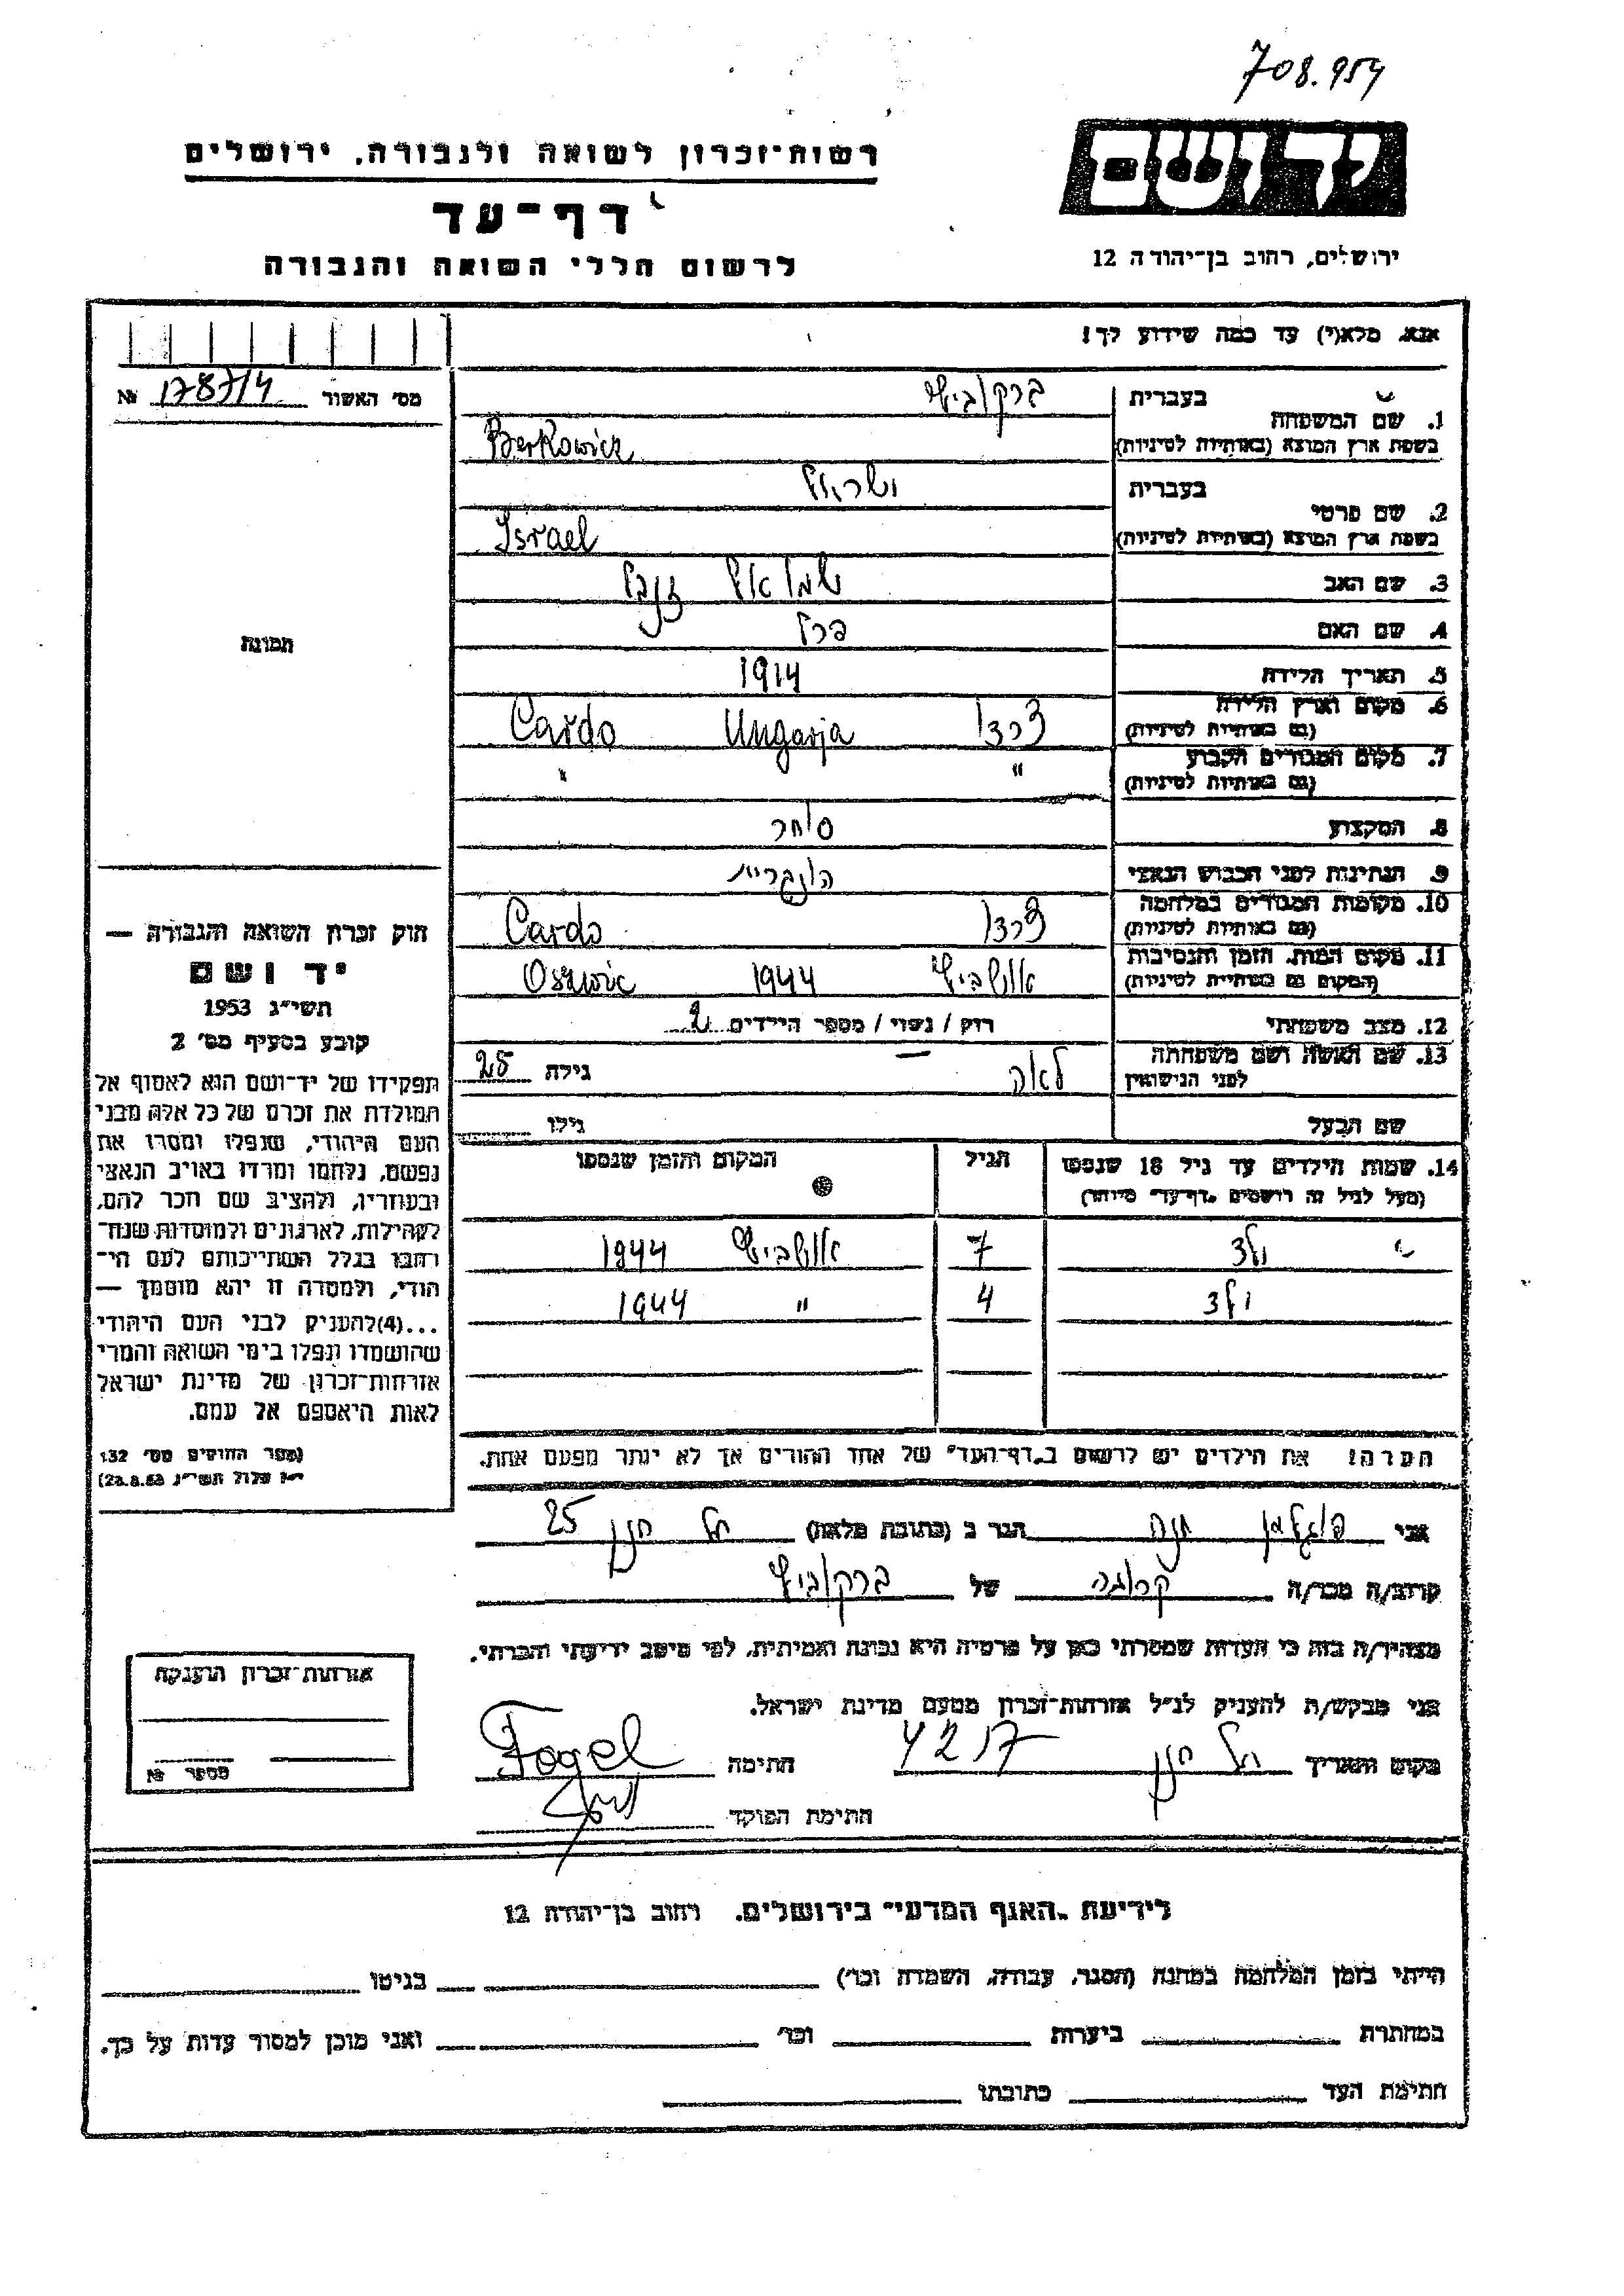 708.954
יד ושם
ירושלים, רחוב בן־יהודה 12
רשות־זכרון לשואה ולגבורה, ירושלים
דף־עד
לרשום חללי השואה והגבורה
אנא, מלא(י) עד כמה שידוע לך!
מס׳ האשור № 17874
1. שם המשפחה בעברית ברקוביץ
בשפת ארץ המוצא (באותיות לטיניות) Berkowicz
2. שם פרטי בעברית ישראל
בשפת ארץ המוצא (באותיות לטיניות) Israel
3. שם האב שמואל
4. שם האם פרל
5. תאריך הלידה 1914
6. מקום וארץ הלידה (גם באותיות לטיניות) Ungarja Cardo
7. מקום המגורים הקבוע (גם באותיות לטיניות) " "
8. המקצוע סוחר
9. הנתינות לפני הכבוש הנאצי הונגרית
10. מקומות המגורים במלחמה (גם באותיות לטיניות) Cardo
11. מקום המות, הזמן והנסיבות (המקום גם באותיות לטיניות) אושביץ 1944
12. מצב משפחתי רווק / נשוי / מספר הילדים 2
13. שם האשה ושם משפחתה לפני הנישואין לאה – גילה 25
שם הבעל גילו
14. שמות הילדים עד גיל 18 שנספו (מעל לגיל זה רושמים „דף־עד״ מיוחד) הגיל המקום והזמן שנספו
ילד 7 אושביץ 1944
ילד 4 " 1944
הערה! את הילדים יש לרשום ב„דף־העד״ של אחד ההורים אך לא יותר מפעם אחת.
תמונה
חוק זכרון השואה והגבורה —
יד ושם
תשי״ג 1953
קובע בסעיף מס׳ 2
תפקידו של יד־ושם הוא לאסוף אל
המולדת את זכרם של כל אלה מבני
העם היהודי, שנפלו ומסרו את
נפשם, נלחמו ומרדו באויב הנאצי
ובעוזריו, ולהציב שם וזכר להם,
לקהילות, לארגונים ולמוסדות שנח־
רבו בגלל השתייכותם לעם הי־
הודי, ולמטרה זו יהא מוסמך —
...(4) להעניק לבני העם היהודי
שהושמדו ונפלו בימי השואה והמרי
אזרחות־זכרון של מדינת ישראל
לאות היאספם אל עמם.
(ספר החוקים מס׳ 132
י״ז אלול תשי״ג 28.8.53)
אני פוגלמן חנה הגר ב (כתובת מלאה) תל חנן 25
קרוב/ה מכר/ה קרובה של ברקוביץ
מצהיר/ה בזה כי העדות שמסרתי כאן על פרטיה היא נכונה ואמיתית, לפי מיטב ידיעתי והכרתי.
אני מבקש/ת להעניק לנ״ל אזרחות־זכרון מטעם מדינת ישראל.
מקום ותאריך תל חנן חתימה Fogel
חתימת הפוקד
אזרחות־זכרון הוענקה
מספר №
לידיעת „האגף המדעי״ בירושלים, רחוב בן־יהודה 12
הייתי בזמן המלחמה במחנה (הסגר, עבודה, השמדה וכו׳) בגיטו
במחתרת ביערות וכו׳ ואני מוכן למסור עדות על כך.
חתימת העד כתובתו